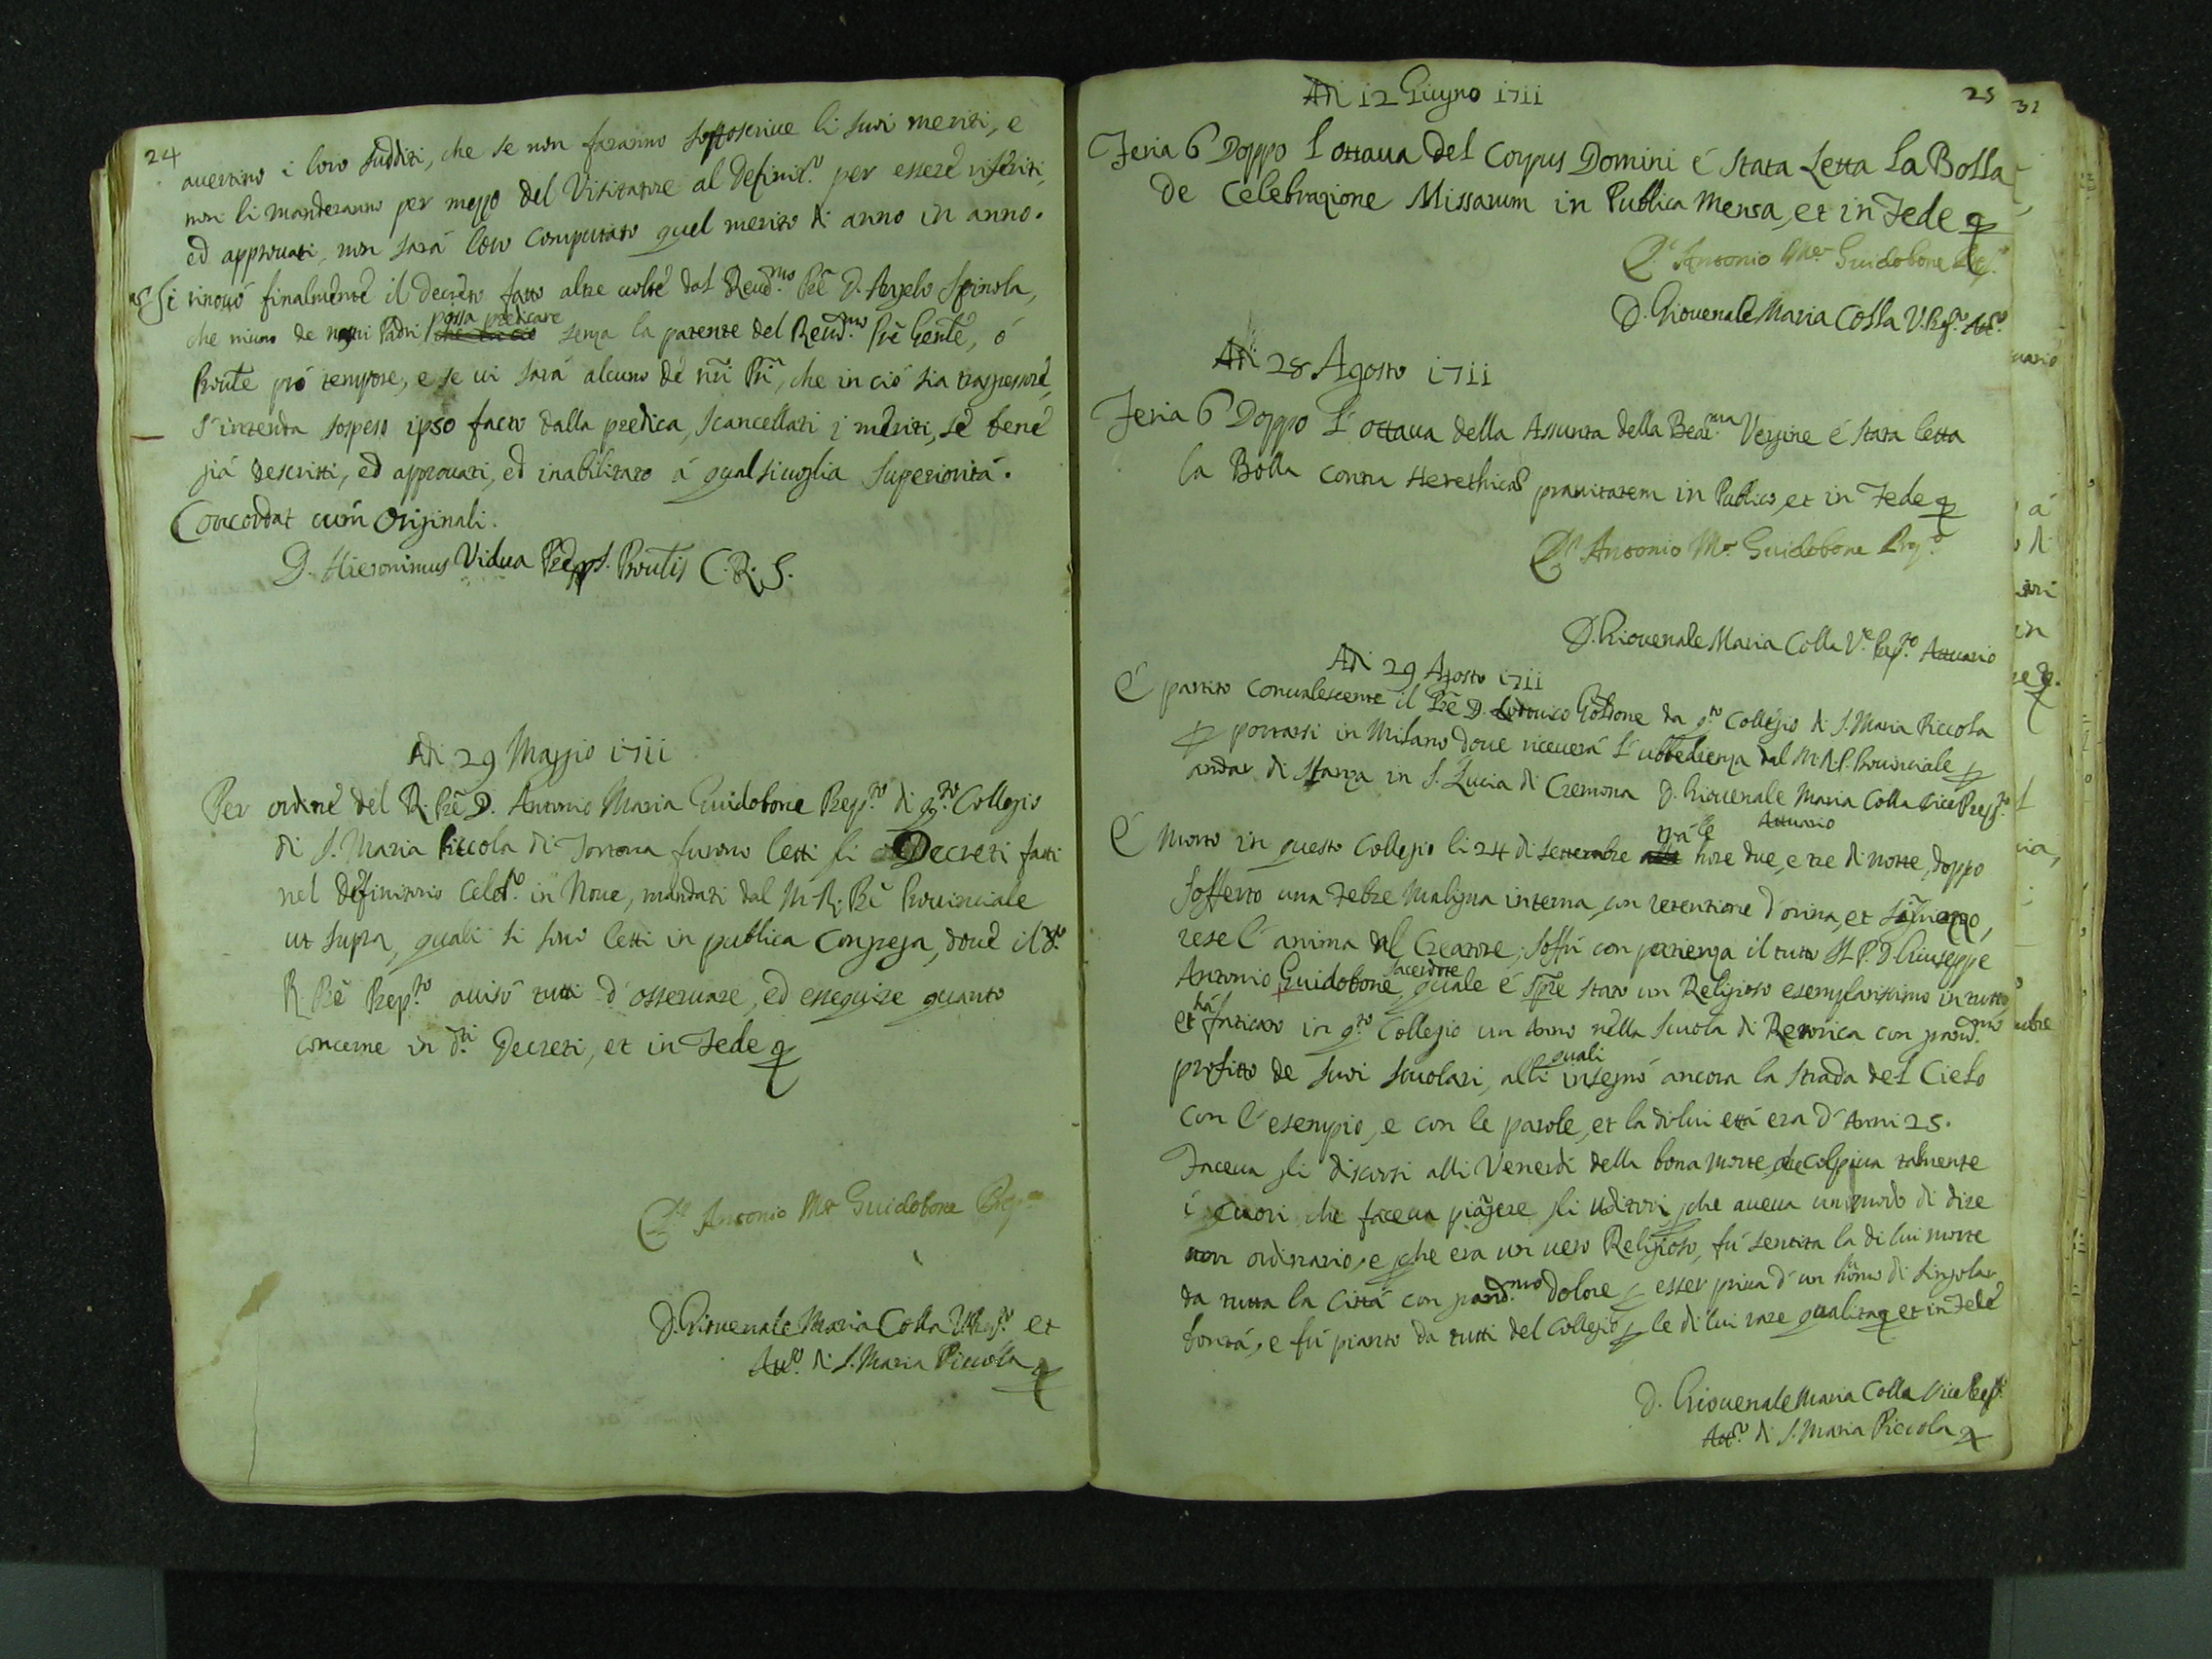 24
auertino i loro sudditi, che se non faranno sottoscriue li suoi meriti, e
non li manderanno per mezzo del Visitatore al Definit.ro per essere riferiti,
ed approuati, non sarà loro computato quel merito di anno in anno.
Si rinouò finalmente il decreto fatto altre uolte dal Reud.mo Prē D. Angelo Spinola,
che niuno de nr̃i Padri possa predicare senza la patente del Reud.mo Prē Gente, ó
Prouꝉe pró tempore, e se ui sará alcuno de nr̃i Pr̃i, che in ció sia trasgressore,
s'intenda sospeso ipso facto dalla predica, scancellati i meriti, se bene
già descritti, ed approuati, ed inabilitato á qualsiuoglia superiorità.
Concordat cum Originali.
D. Hieronimus Vidua Prēpos. Prou̅lis C.R.S.
Adi 29 Maggio 1711
Per ordine del R. Prē D. Antonio Maria Guidobone Prep.to di q.to Collegio
di S. Maria Piccola di Tortona furono letti li Decreti fatti
nel definitorio Celeb.to in Noue, mandati dal M. R. Prē Prouinciale
ut supra, quali si sono letti in publica Congrega, doue il d.to
R. Prē Prep.to auisò tutti d'osseruare, ed esseguire quanto
concerne in d.ti Decreti, et in Fede
D. Antonio Mª Guidobone Prep.to
D. Giouenale Maria Colla V. Prep.to et
Att.ro di S. Maria Piccola
25
Adi 12 Giugno 1711
Feria 6 Doppo l'ottaua del Corpus Domini é stata Letta La Bolla
de Celebrazione Missarum in Publica Mensa, et in Fede
D. Antonio Mª Guidobone Prep.to
D. Giouenale Maria Colla V. Prep.to Att.ro
Adi 28 Agosto 1711
Feria 6 Doppo l'ottaua della Assunta della Beat.ma Vergine é stata letta
la Bolla contra Herethicas prauitatem in Publico, et in Fede
D. Antonio Mª Guidobone Prep.to
D. Giouenale Maria Colla V.e Prep.to Attuario
Adi 29 Agosto 1711
É partito conualescente il Prē D. Lodouico Goldone da q.to Collegio di S. Maria Piccola
ꝑ portarsi in Milano doue riceuerá l'ubbedienza dal M.R.P. Prouinciale ꝑ
andar di Stanza in S. Lucia di Cremona D. Giouenale Maria Colla Vice Prep.to
Attuario
É morto in questo Collegio li 24 di settembre trá le hore due, e tre di notte, doppo
sofferto una Febre Maligna interna, con retentione d'orina, et
rese l'anima al Creatore; soffrì con patienza il tutto Il P. D. Giuseppe
Antonio Guidobone sacerdote, quale é sp̃re stato un Religioso esemplarissimo in tutto,
et há faticato in q.to Collegio un Anno nella Scuola di Retorica con grand.mo
profitto de suoi scuolari, alli quali insegnó ancora la strada del Cielo
con l'esempio, e con le parole, et la di lui età era d'Anni 25.
Faceua gli discorsi alli Venerdi della bona morte, che colpiua talmente
i cuori che faceua piãgere gli uditori, ꝑche aueua un modo di dire
non ordinario, e ꝑche era un uero Religioso, fú sentita la di lui morte
da tutta la Città con grand.mo dolore ꝑ esser priua d'un hōmo di singolar
bontá, e fú pianto da tutti del Collegio ꝑ le di lui rare qualità et in Fede
D. Giouenale Maria Colla Vice Prep.to
Att.ro di S. Maria Piccola